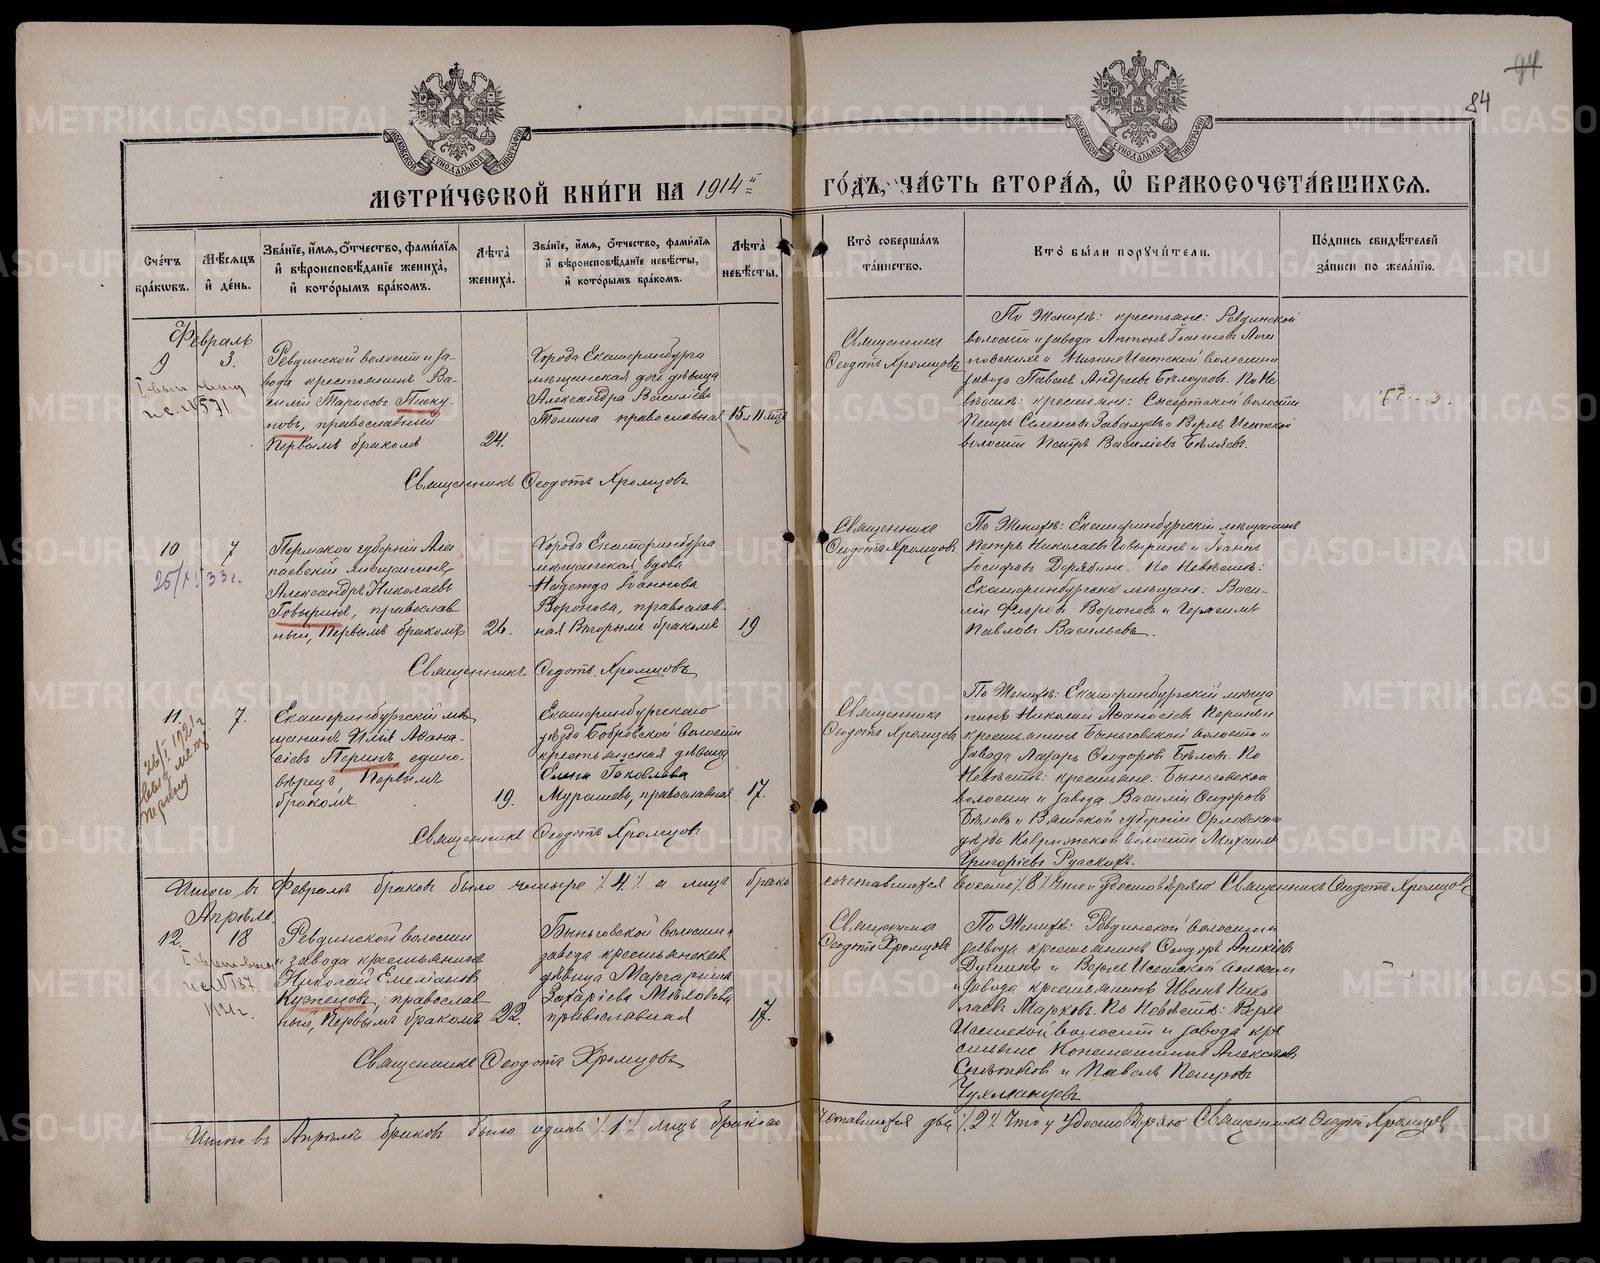 84
МОСКОВСКОЙ СѴНОДАЛЬНОЙ ТИПОГРАФІИ
МОСКОВСКОЙ СѴНОДАЛЬНОЙ ТИПОГРАФІИ
МЕТРИ́ЧЕСКОЙ КНИ́ГИ НА 1914й ГО́ДЪ, ЧА́СТЬ ВТОРА́Я, Ѡ҆ БРАКОСОЧЕТА́ВШИХСЯ.
Сче́тъ бра́кѡвъ.
Мѣ́сяцъ и҆ де́нь.
Зва́нїе, и҆́мя, ѻ҆́тчество, фами́лїя и҆ вѣроисповѣ́данїе жениха̀, и҆ кото́рымъ бра́комъ.
Лѣ́та̀ жениха̀.
Зва́нїе, и҆́мя, ѻ҆́тчество, фами́лїя и҆ вѣроисповѣ́данїе невѣ́сты, и҆ кото́рымъ бра́комъ.
Лѣ́та̀ невѣ́сты.
Кто̀ соверша́лъ та́инство.
Кто̀ бы́ли порꙋчи́тели.
По́дпись свидѣ́телей за́писи по жела́нїю.
Февраль
9 3.
Ревдинской волости и за-
вода крестьянинъ Ва-
силій Тарасовъ Пику-
новъ, православный
Первымъ бракомъ
24.
Города Екатеринбурга
мѣщанская дочь дѣвица
Александра Васильева
Толмина православная
15 л 11 мѣс
Священникъ
Ѳеодотъ Хромцовъ
По Женихѣ: крестьяне: Ревдинской
волости и завода Антонъ Іоанновъ
и Нижне Исетской волости
завода Павелъ Андреевъ Бѣлоусовъ. По Не-
вѣстѣ: крестьяне:
Петръ Семеновъ и Верхъ Исетской
волости Петръ Васильевъ Бѣляевъ.
Священникъ Ѳеодотъ Хромцовъ
10 7
25/XI 33 г.
Пермской губерніи Ала-
паевскій мѣщанинъ
Александръ Николаевъ
Говыринъ, православ-
ный, Первымъ бракомъ
26.
Города Екатеринбурга
мѣщанская вдова
Надежда Іоаннова
Воронова, православ-
ная Вторымъ бракомъ
19
Священникъ
Ѳеодотъ Хромцовъ
По Женихѣ: Екатеринбургскій мѣщанинъ
Петръ Николаевъ Говыринъ и Іоаннъ
Іосифовъ Дерябинъ. По Невѣстѣ:
Екатеринбургскіе мѣщане: Васи-
лій Ѳедоровъ Вороновъ и Герасимъ
Павловъ Васильевъ.
Священникъ Ѳеодотъ Хромцовъ
11. 7.
Екатеринбургскій мѣ-
щанинъ Илія Аѳана-
сіевъ Перинъ, едино-
вѣрецъ Первымъ
бракомъ
19.
Екатеринбургскаго
уѣзда Бобровской волости
крестьянская дѣвица
Елена Іаковлева
православная
17.
Священникъ
Ѳеодотъ Хромцовъ
По Женихѣ: Екатеринбургскій мѣща-
нинъ Николай Аѳанасіевъ Перинъ и
крестьянинъ Быньговской волости и
завода Лазарь Ѳеодоровъ Бѣловъ. По
Невѣстѣ: крестьяне: Быньговской
волости и завода Василій Ѳеодоровъ
Бѣловъ и Вятской губерніи Орловскаго
уѣзда волости Михаилъ
Григорьевъ
Священникъ Ѳеодотъ Хромцовъ
Итого въ Февралѣ браковъ было четыре ٪ 4 ٪ а лицъ брако сочетавшихся восемь ٪ 8 ٪ Что и удостовѣряю Священникъ Ѳеодотъ Хромцовъ
Апрѣль
12. 18
Ревдинской волости
и завода крестьянинъ
Николай Емеліановъ
Кузнецовъ, православ-
ный, Первымъ бракомъ
22.
Быньговской волости и
завода крестьянская
дѣвица Маргарита
Захаріева
православная
17.
Священникъ
Ѳеодотъ Хромцовъ
По Женихѣ: Ревдинской волости и
завода крестьянинъ Ѳеодоръ
и Верхъ Исетской волости
и завода крестьянинъ Иванъ Нико-
лаевъ Марковъ. По Невѣстѣ: Верхъ
Исетской волости и завода кре-
стьяне Константинъ Алексѣевъ
и Павелъ Петровъ
Чухланцевъ
Священникъ Ѳеодотъ Хромцовъ
Итого въ Апрѣлѣ браковъ было одинъ ٪ 1 ٪ лицъ бракосо четавшихся два ٪ 2 ٪ Что и удостовѣряю Священникъ Ѳеодотъ Хромцовъ
METRIKI.GASO-URAL.RU